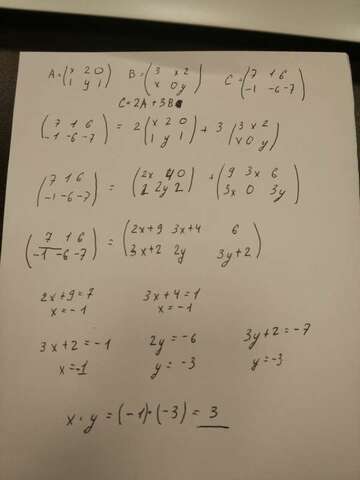 A = (x 2 0 / 1 y 1) B = (3 x 2 / x 0 y) C = (7 1 6 / -1 -6 -7)
C = 2A + 3B
(7 1 6 / -1 -6 -7) = 2 (x 2 0 / 1 y 1) + 3 (3 x 2 / x 0 y)
(7 1 6 / -1 -6 -7) = (2x 4 0 / 2 2y 2) + (9 3x 6 / 3x 0 3y)
(7 1 6 / -1 -6 -7) = (2x+9 3x+4 6 / 3x+2 2y 3y+2)
2x+9=7 3x+4=1
x=-1 x=-1
3x+2=-1 2y=-6 3y+2=-7
x=-1 y=-3 y=-3
x·y = (-1)·(-3) = 3